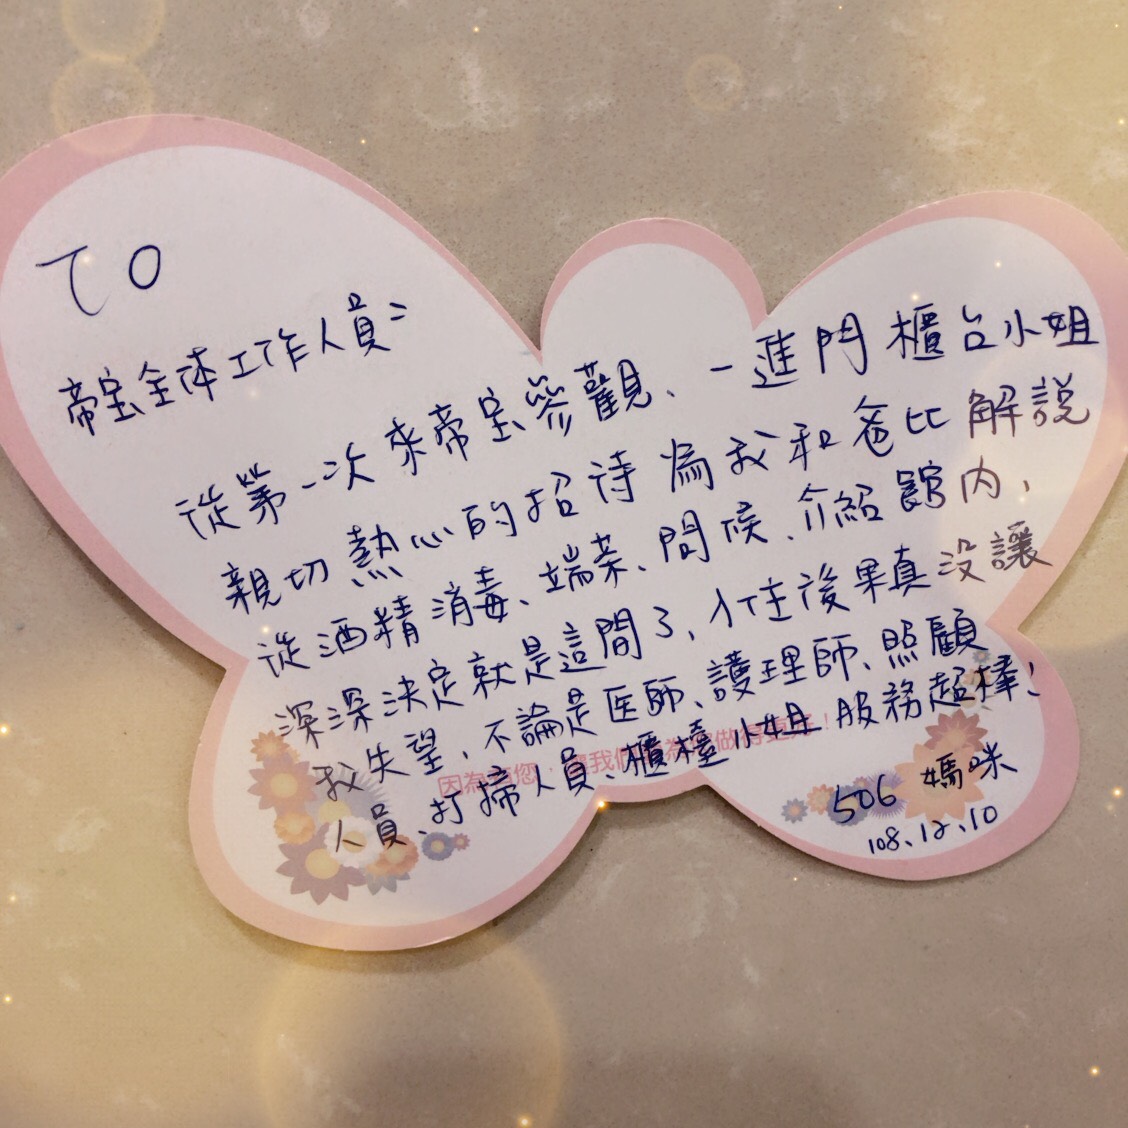 TO
帝宝全体工作人員:
從第一次來帝宝參觀、一進門櫃台小姐
親切熱心的招待為我和爸比解説
從酒精消毒、端茶、問候、介紹館内,
深深決定就是這間了,入住後果真没讓
我失望,不論是医師、護理師、照顧
人員、打掃人員、櫃檯小姐服務超棒!
506 媽咪
108.12.10